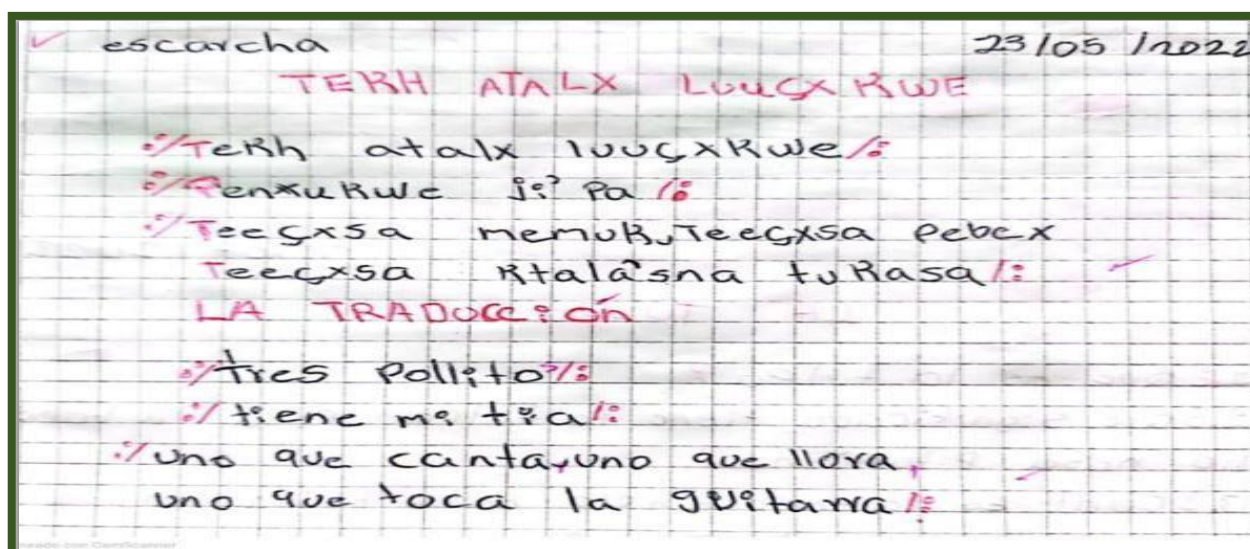 escarcha 23/05/2022
TEKH ATALX LUUÇX KWE
:/Tekh atalx luuçxkwe/:
:/Penxukwe ji? pa/:
:/Teeçxsa memuk, Teeçxsa pebex
Teeçxsa ktala'sna tukasa/:
LA TRADUCCión
:/tres pollito/:
:/tiene mi tia/:
:/uno que canta, uno que llora,
uno que toca la guitarra/: